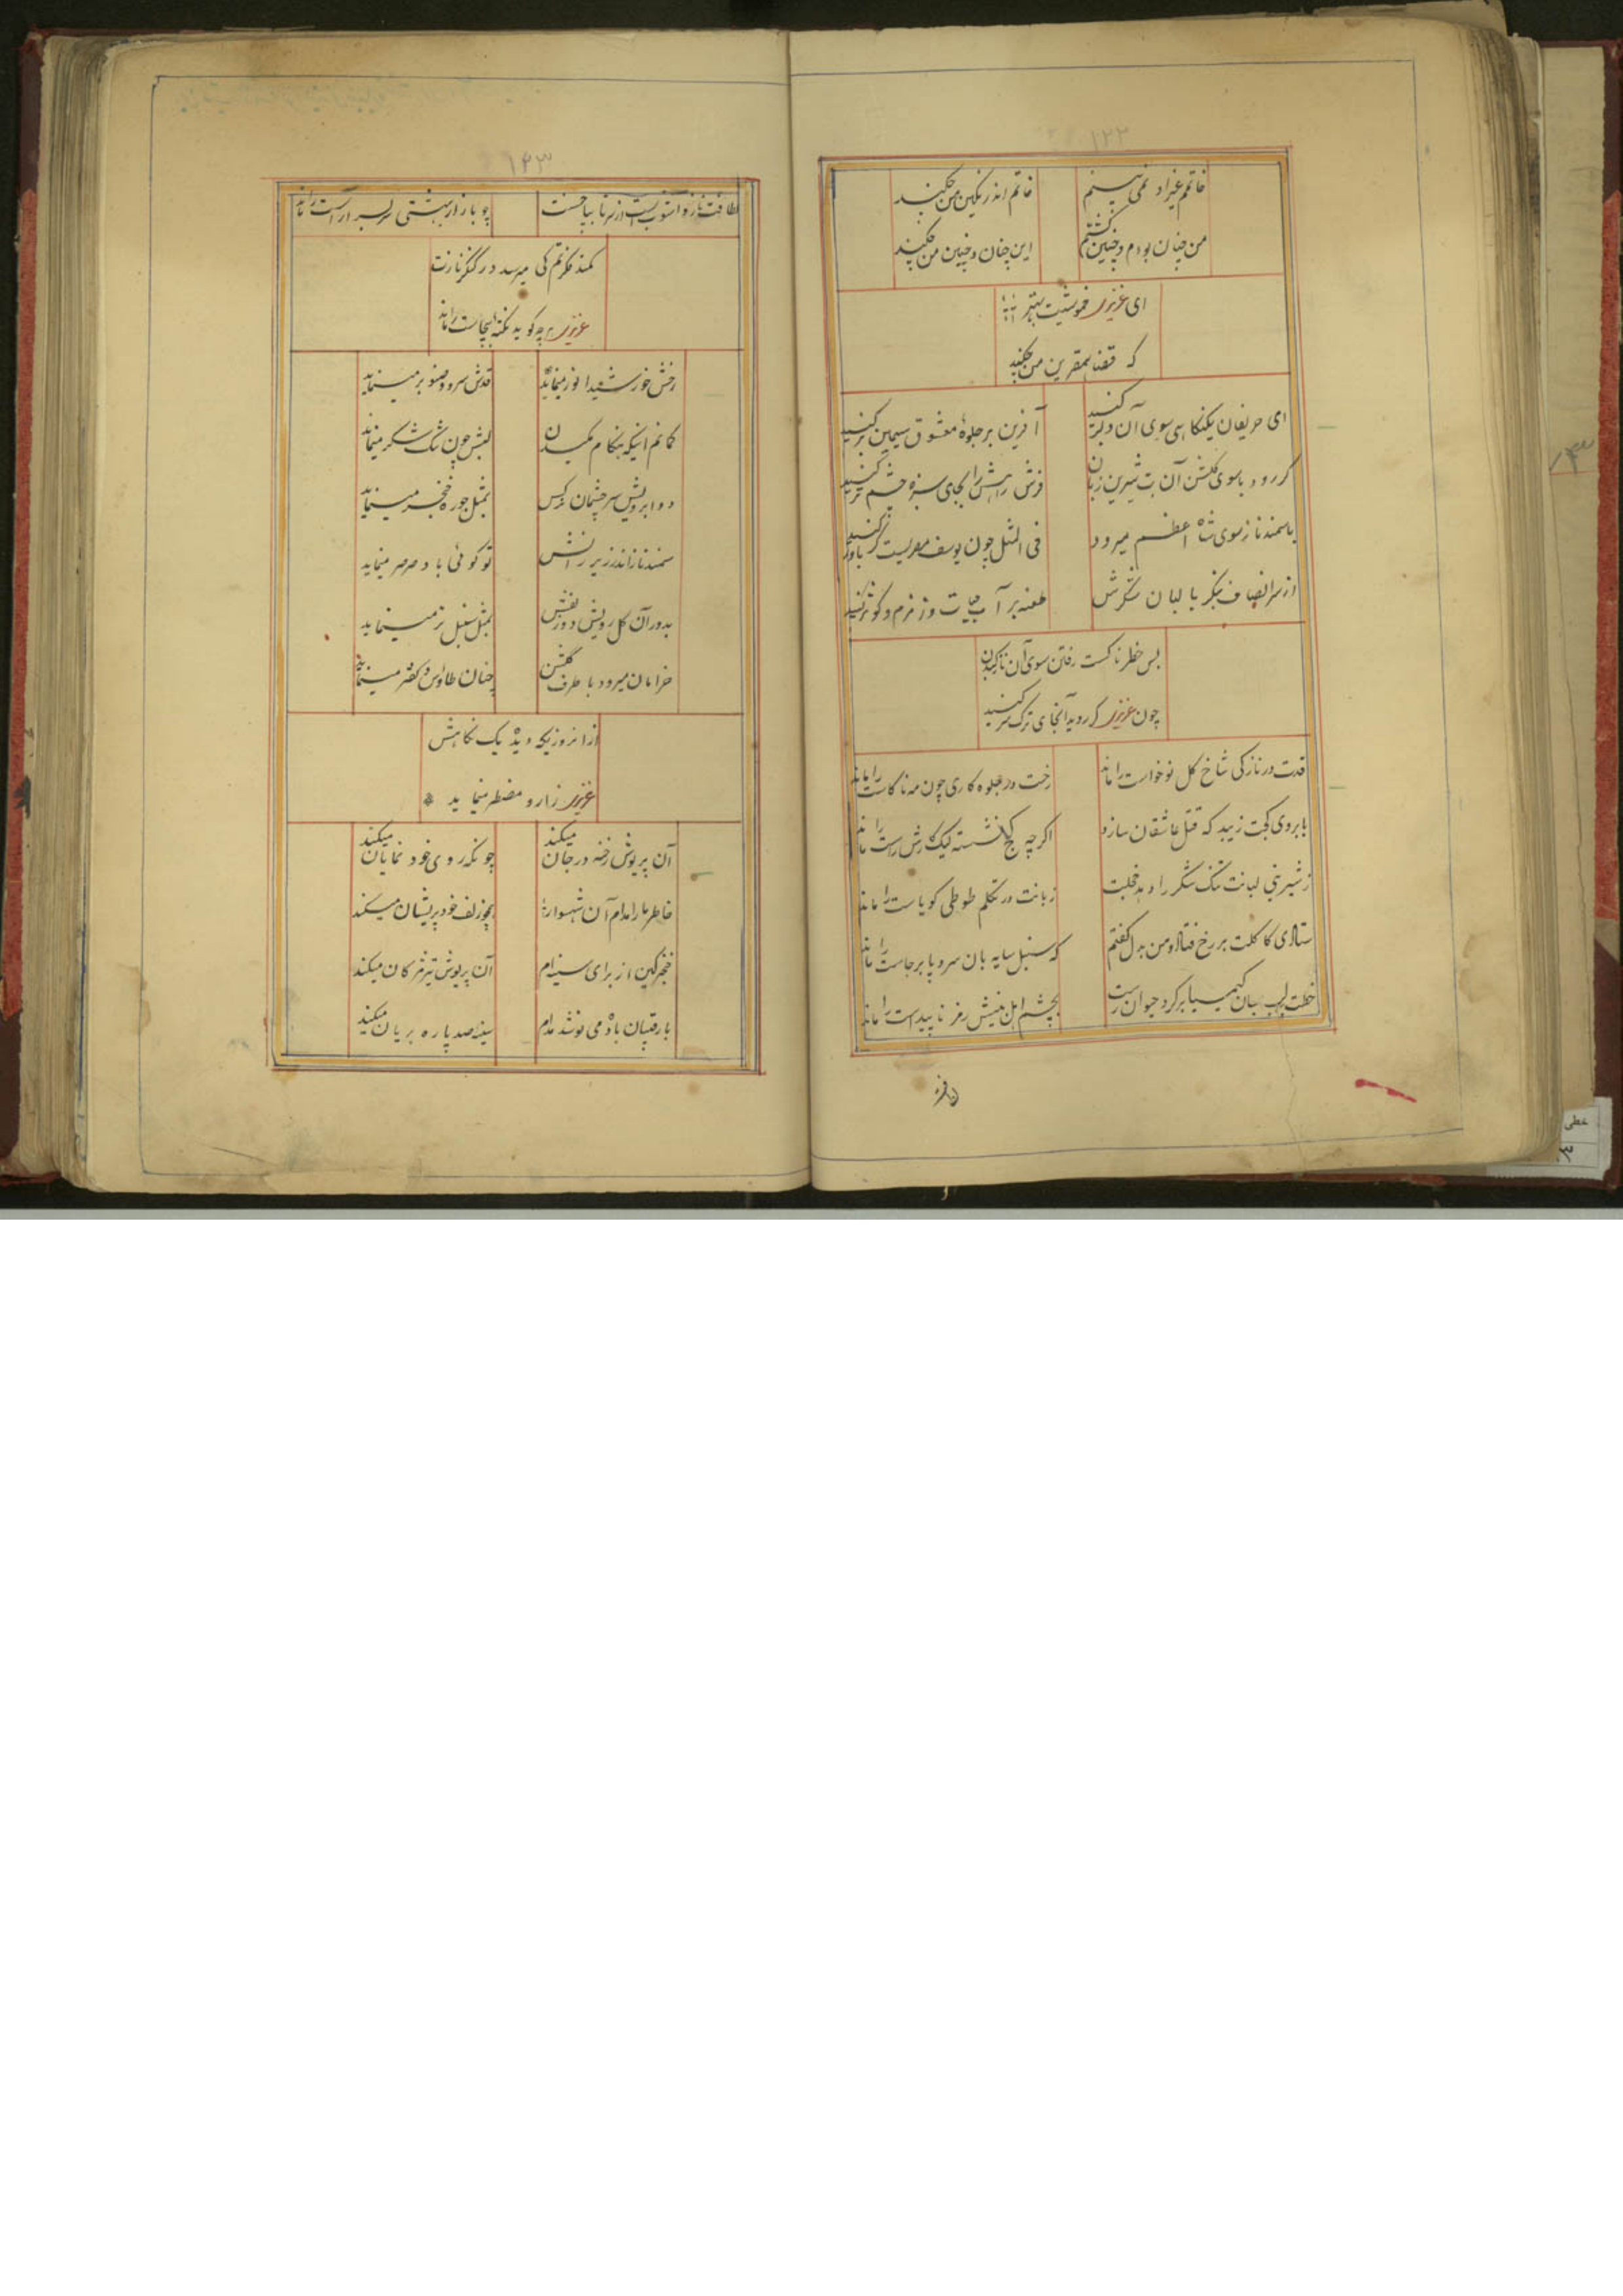 ۱۲۲
خاتمم غیر او نمی بینم
خاتم اندر نگین من چکنید
من چنان بودم و چنین گشتم
این چنان و چنین من چکنید
ای عزیزی خموشیت بهتر
که قضا همقرین من چکنید
ای حریفان یکنکاهی سوی آن دلبر کنید
آفرین بر جلوۀ معشوق سیمین بر کنید
گر رود با سوی گلشن آن بت شیرین زبان
فرش راهش را بجای سبزه چشم تر کنید
با سمند ناز سوی شاه اعظم میرود
فی المثل چون یوسف مصریست گر باور کنید
از سر انصاف بنگر با لبان شکرش
طعنه بر آب حیات و زمزم و کوثر کنید
بس خطرناکست رفتن سوی آن
چون عزیزی گر روید آنجای ترک سر کنید
قدت در نازکی شاخ گل نوخواست را ماند
رخت در جلوه کاری چون مه ناکاست را ماند
بابروی کجت زیبد که قتل عاشقان سازد
اگرچه کج نشسته لیک کارش راست را ماند
ز شیرینی لبانت تنگ شکر را دهد خجلت
زبانت در تکلم طوطی کویاست را ماند
کاکلت بر رخ فتاد و من بدل گفتم
که سنبل سایه بان سرو پا برجاست را ماند
خطت لب
بچشم اهل بینش رمز ناپیداست را ماند
۱۲۳
لطافت تازه اسلوبیست از سر تا بپا حسنت
چو بازار بهشتی سربسر آراست را ماند
کمند فکرتم کی میرسد در کنگر نازت
عزیزی هرچه کوید نکته بیجاست را ماند
رخش خورشید انور مینماید
قدش سرو و صنوبر مینماید
گمانم اینکه هنگام
لبش چون تنگ شکر مینماید
دو ابرویش سر چشمان نرکس
بمثل خنجر مینماید
سمند ناز اندر زیر رانش
تو گوئی باد صرصر مینماید
بدور آن گل رویش دو زلفش
بمثل سنبل تر مینماید
خرامان میرود با طرف گلشن
چنان طاوس و کفتر مینماید
از آنروزیکه دیده یک نکاهش
عزیزی زار و مضطر مینماید
آن پریوش رخنه در جان میکند
چونکه روی خود نمایان میکند
خاطر ما را مدام آن شهسوار
همچو زلف خود پریشان میکند
خنجر کین از برای سینه‌ام
آن پریوش تیز مژکان میکند
با رقیبان باده می نوشد مدام
سینه صد پاره بریان میکند